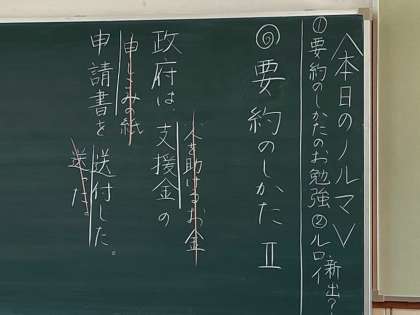 ＜本日のノルマ＞
①要約のしかたのお勉強②ルロイ新出？
◎要約のしかたⅡ
人を助けるお金
政府は、支援金の
申しこみの紙
申請書を送付した。
送った。